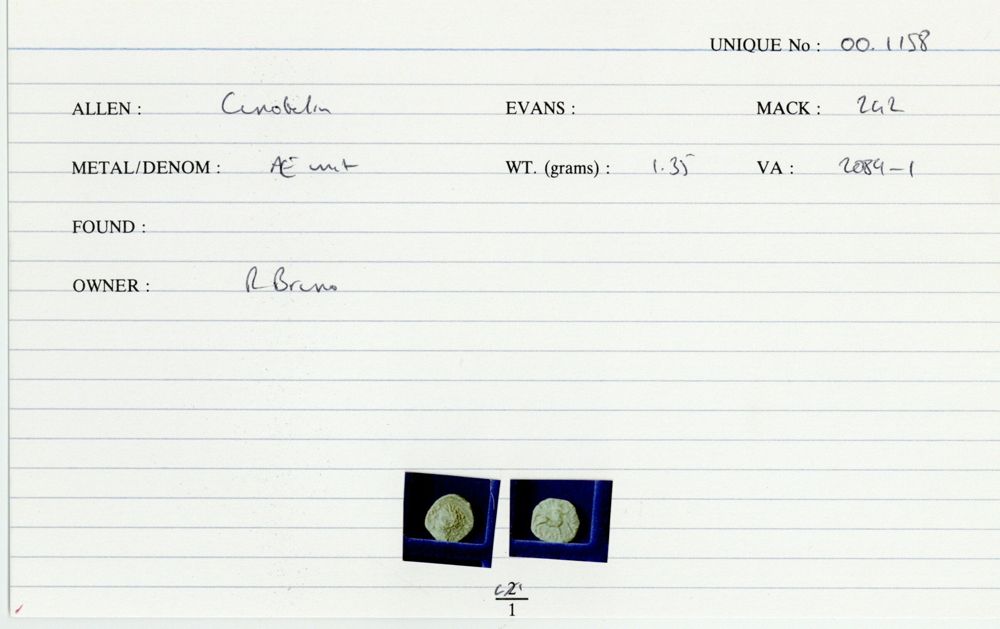 UNIQUE No : 00.1158
ALLEN : Cunobelin EVANS : MACK : 242
METAL/DENOM : Æ unit WT. (grams) : 1.35 VA : 2089-1
FOUND :
OWNER : R
2
1